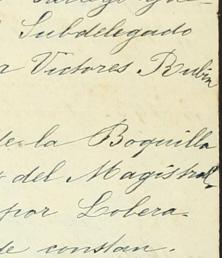 Subdelegado
Victores Rubin
de la Boquilla
del Magistral
por Lobera
de constan.